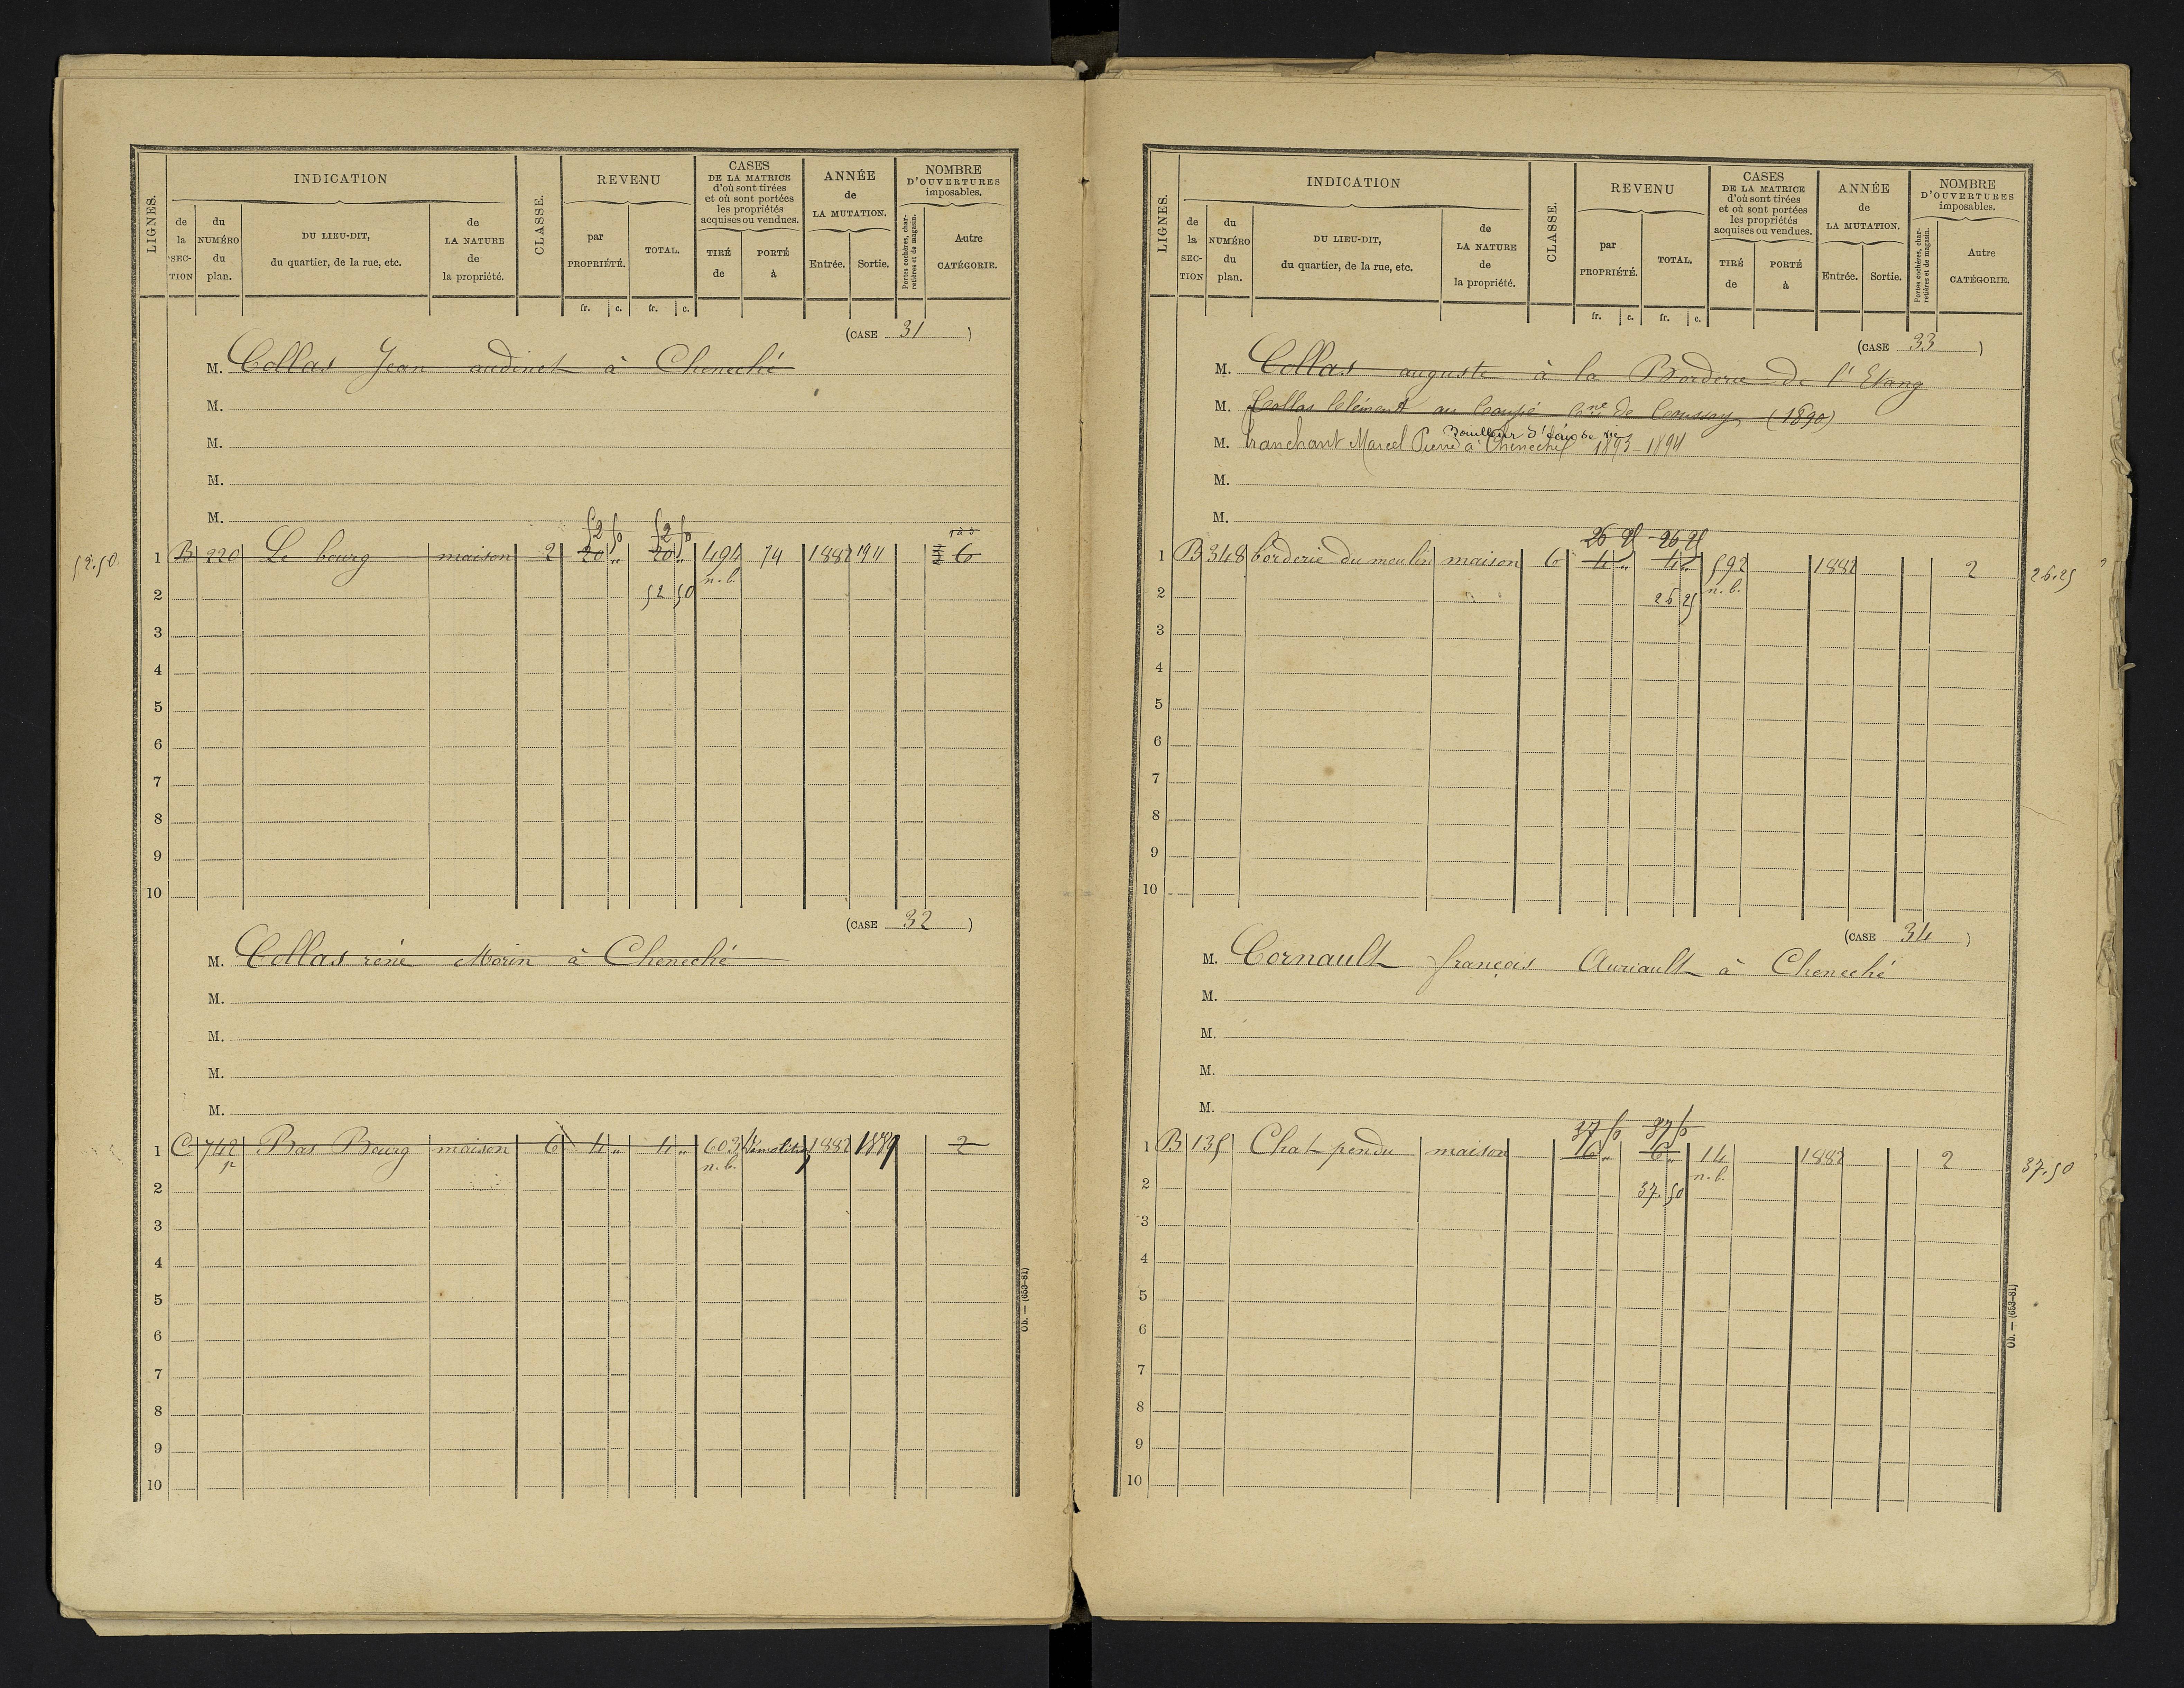 LIGNES.
INDICATION
de la SEC-TION
du NUMÉRO du plan.
DU LIEU-DIT, du quartier, de la rue, etc.
de LA NATURE de la propriété.
CLASSE.
REVENU
par PROPRIÉTÉ.
TOTAL.
fr. c. fr. c.
CASES DE LA MATRICE d'où sont tirées et où sont portées les propriétés acquises ou vendues.
TIRÉ de
PORTÉ à
ANNÉE de LA MUTATION.
Entrée. Sortie.
NOMBRE D'OUVERTURES imposables.
Portes cochères, charretières et de magasin.
Autre CATÉGORIE.
(CASE 31)
M. Collas Jean audinet à Cheneché
M.
M.
M.
M.
52 50 52 50
52.50 1 B 220 Le bourg maison 2 20 " 20 " 494 74 1882 1911 6
n.b.
2 52 50
3
4
5
6
7
8
9
10
(CASE 32)
M. Collas réné Morin à Cheneché
M.
M.
M.
M.
1 C 742 p Bas Bourg maison 6 4 " 4 " 603 Démolition 1882 1889 2
n.b.
2
3
4
5
6
7
8
9
10
Ob. — (653-81)
LIGNES.
INDICATION
de la SEC-TION
du NUMÉRO du plan.
DU LIEU-DIT, du quartier, de la rue, etc.
de LA NATURE de la propriété.
CLASSE.
REVENU
par PROPRIÉTÉ.
TOTAL.
fr. c. fr. c.
CASES DE LA MATRICE d'où sont tirées et où sont portées les propriétés acquises ou vendues.
TIRÉ de
PORTÉ à
ANNÉE de LA MUTATION.
Entrée. Sortie.
NOMBRE D'OUVERTURES imposables.
Portes cochères, charretières et de magasin.
Autre CATÉGORIE.
(CASE 33)
M. Collas auguste à la Borderie de l'Etang
M. Collas Clément au Coupé Cne de Coussay (1890)
Bouilleur d'eau de vie
M. Tranchant Marcel Pierre à Cheneché 1893-1894
M.
M.
26 25 26 25
1 B 348 borderie du moulin maison 6 4 " 4 " 592 1882 2 26.25
n.b.
2 26 25
3
4
5
6
7
8
9
10
(CASE 34)
M. Cornault françois Auriault à Cheneché
M.
M.
M.
M.
37 50 37 50
1 B 135 Chat pendu maison 6 " 14 1882 2 37.50
n.b.
2 37.50
3
4
5
6
7
8
9
10
Ob. — (653-81)